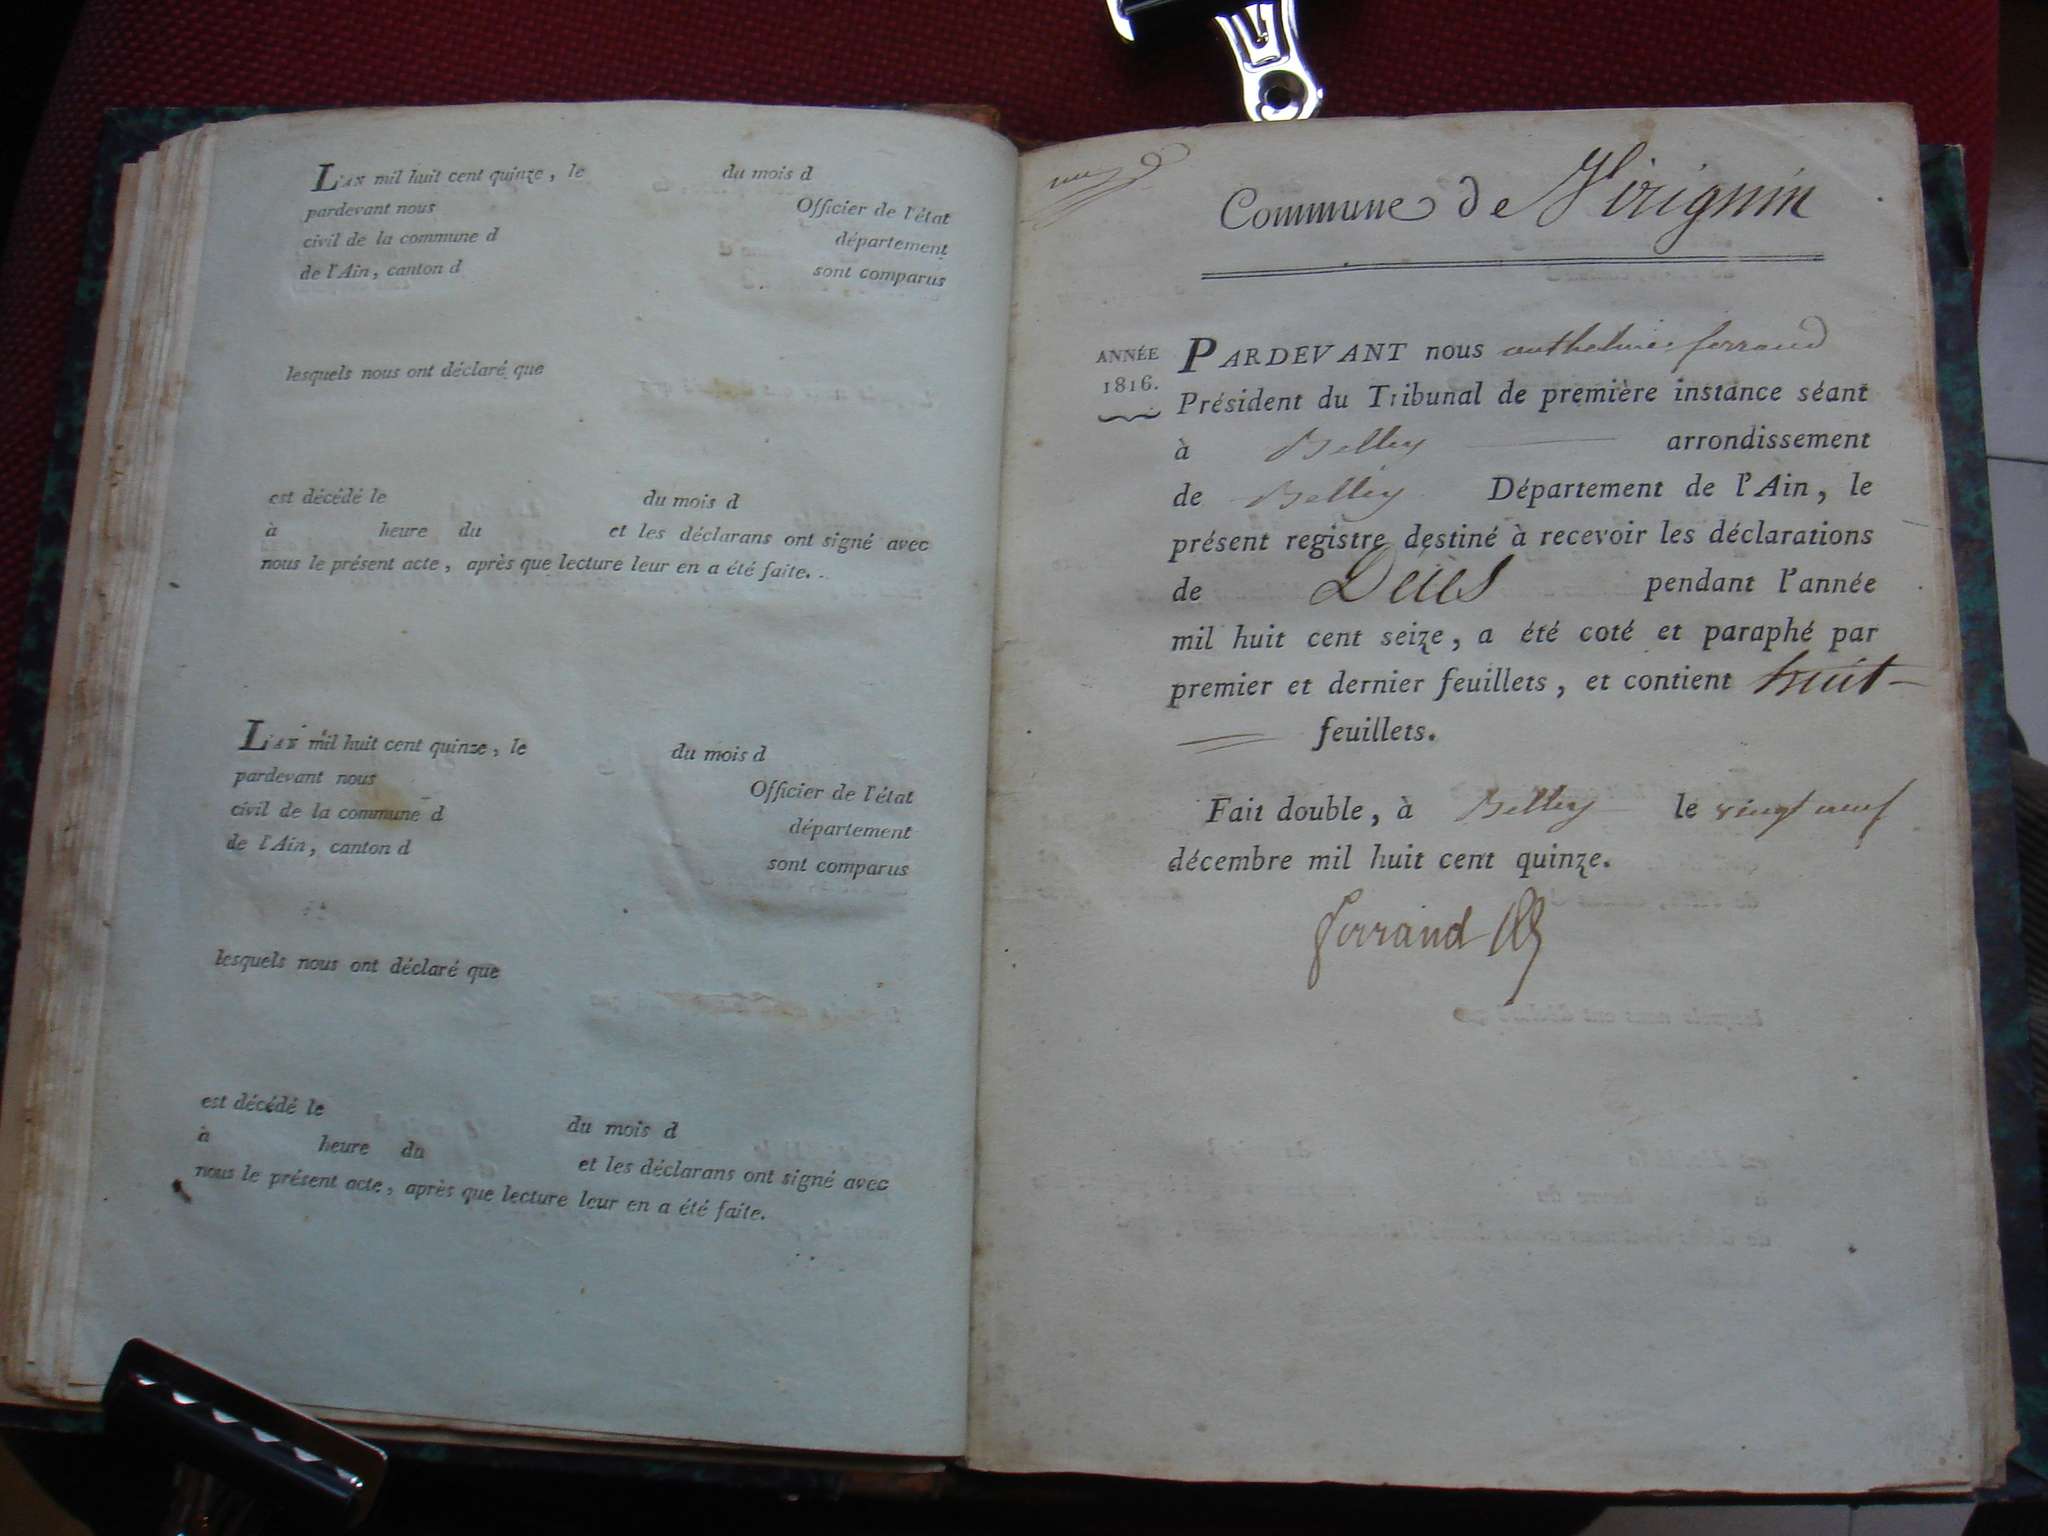 L'AN mil huit cent quinze, le du mois d
pardevant nous Officier de l'état
civil de la commune d département
de l'Ain, canton d sont comparus
lesquels nous ont déclaré que
est décédé le du mois d
à heure du et les déclarans ont signé avec
nous le présent acte, après que lecture leur en a été faite.
L'AN mil huit cent quinze, le du mois d
pardevant nous Officier de l'état
civil de la commune d département
de l'Ain, canton d sont comparus
lesquels nous ont déclaré que
est décédé le du mois d
à heure du et les déclarans ont signé avec
nous le présent acte, après que lecture leur en a été faite.
Commune de Virignin
ANNÉE
1816.
PARDEVANT nous anthelme ferrand
Président du Tribunal de première instance séant
à Belley arrondissement
de Belley Département de l'Ain, le
présent registre destiné à recevoir les déclarations
de Décès pendant l'année
mil huit cent seize, a été coté et paraphé par
premier et dernier feuillets, et contient huit
feuillets.
Fait double, à Belley le vingt neuf
décembre mil huit cent quinze.
ferrand